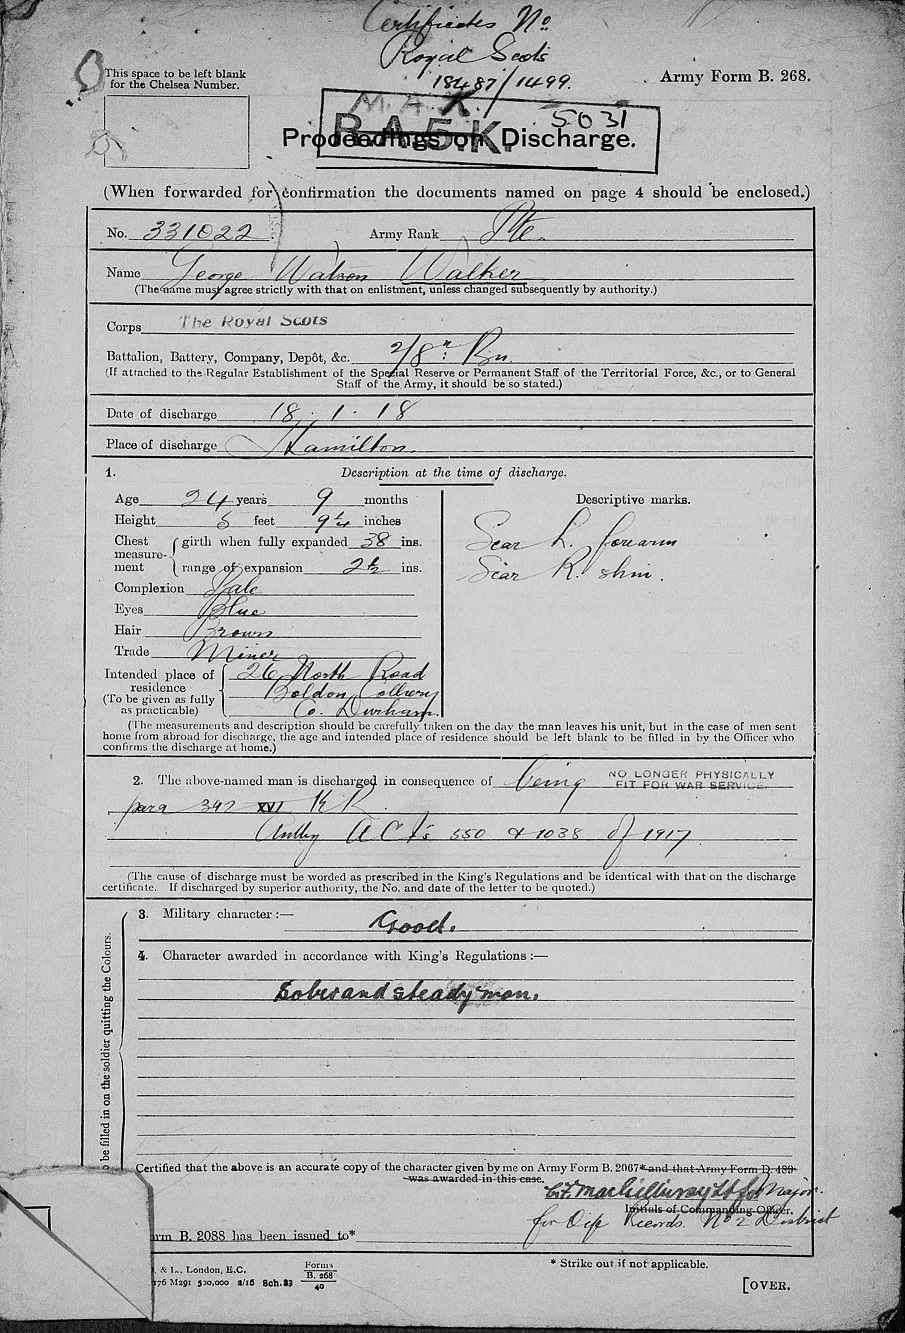 Certificates No.
Royal Scots
18487/1499.
This space to be left blank
for the Chelsea Number.
Army Form B. 268.
5031
Proceedings on Discharge.
(When forwarded for confirmation the documents named on page 4 should be enclosed.)
No. 331022 Army Rank Pte.
Name George Watson Walker
(The name must agree strictly with that on enlistment, unless changed subsequently by authority.)
Corps The Royal Scots
Battalion, Battery, Company, Depôt, &c. 2/8th Bn.
(If attached to the Regular Establishment of the Special Reserve or Permanent Staff of the Territorial Force, &c., or to General
Staff of the Army, it should be so stated.)
Date of discharge 18. 1. 18
Place of discharge Hamilton.
1. Description at the time of discharge.
Age 24 years 9 months
Height 5 feet 9¼ inches
Chest measurement girth when fully expanded 38 ins.
range of expansion 2½ ins.
Complexion Pale
Eyes Blue
Hair Brown
Trade Miner
Intended place of residence 26 North Road
(To be given as fully as practicable) Boldon Colliery
Co. Durham.
Descriptive marks.
Scar L. forearm
Scar R. shin.
(The measurements and description should be carefully taken on the day the man leaves his unit, but in the case of men sent
home from abroad for discharge, the age and intended place of residence should be left blank to be filled in by the Officer who
confirms the discharge at home.)
2. The above-named man is discharged in consequence of being NO LONGER PHYSICALLY
FIT FOR WAR SERVICE.
para 392 XVI KR.
Authy A C I's 550 & 1038 of 1917
(The cause of discharge must be worded as prescribed in the King's Regulations and be identical with that on the discharge
certificate. If discharged by superior authority, the No. and date of the letter to be quoted.)
be filled in on the soldier quitting the Colours.
3. Military character:— Good.
4. Character awarded in accordance with King's Regulations:—
Sober and steady man.
Certified that the above is an accurate copy of the character given by me on Army Form B. 2067* and that Army Form D. 489
was awarded in this case.
Lt for Major.
Initials of Commanding Officer.
for Records. No 2 District
rm B. 2088 has been issued to*
* Strike out if not applicable.
& L., London, E.C.
176 M291 500,000 2/16 Sch. 33
Forms
B. 268
40
[OVER.